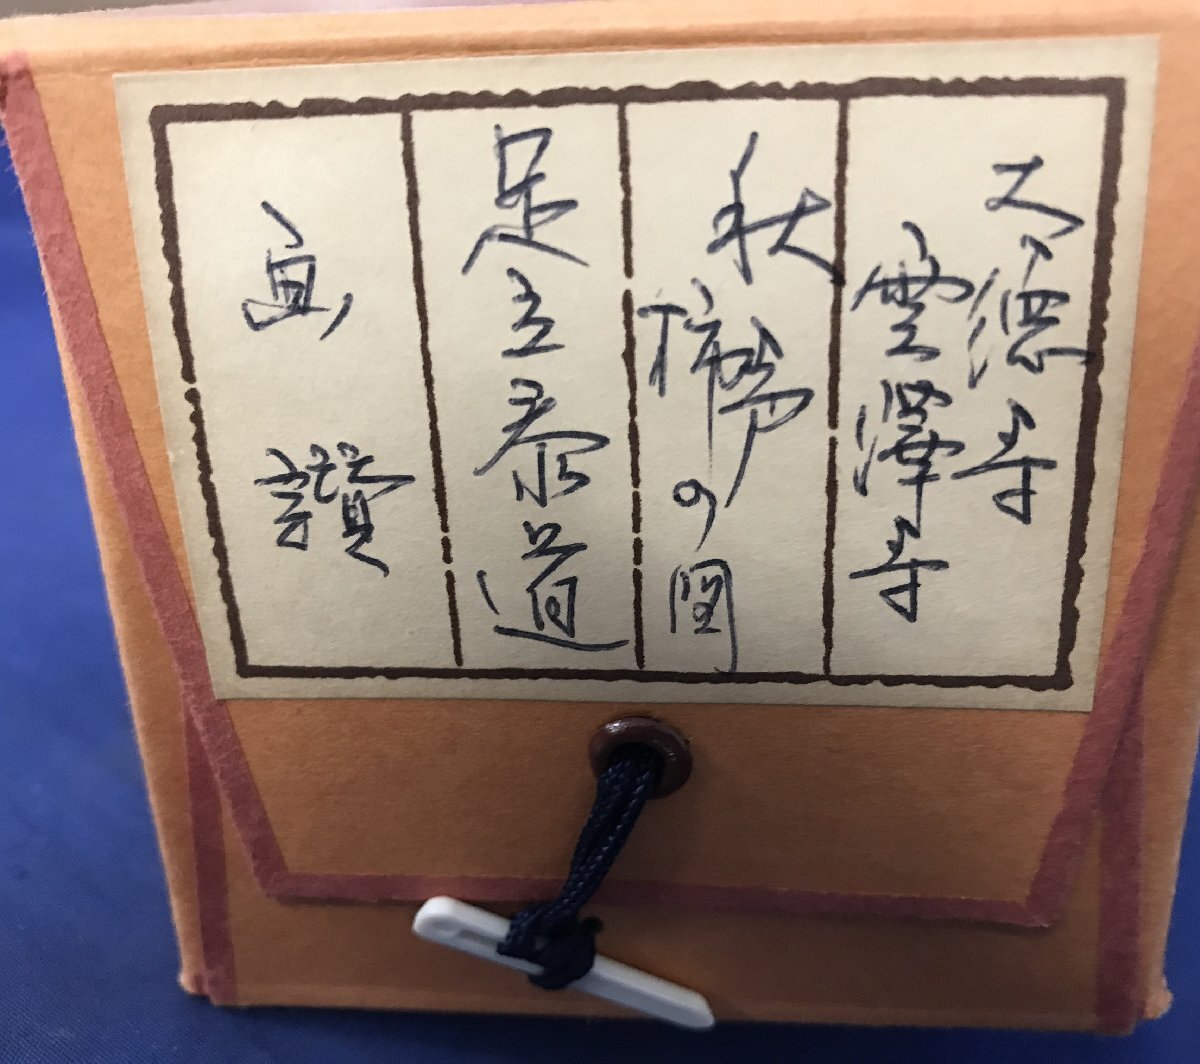 大徳寺
雲澤寺
秋の図
足立泰道
画讃